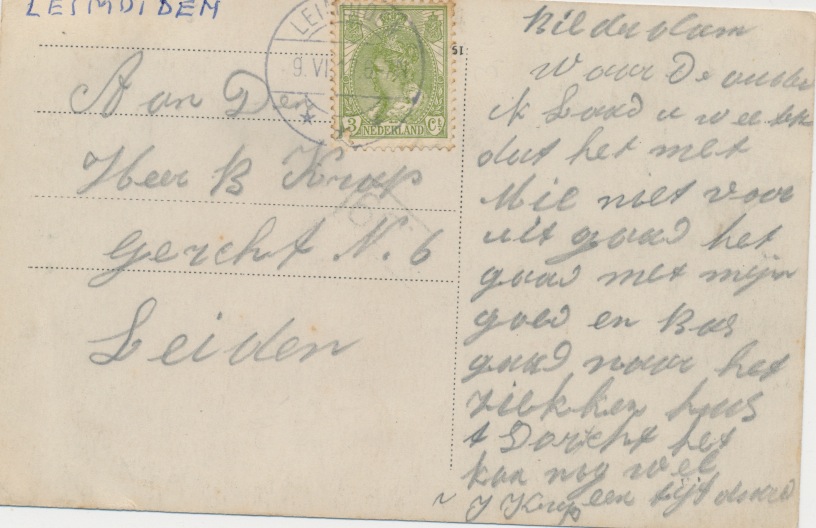 LEIMDIDEM
LEIM
9. VI
3 NEDERLAND Ct
Aan Den
Heer B Krup
Gerecht N. 6
Leiden
51
Kilderdam
Waar De ouder
ik Laad u weeten
dat het met
Mie niet voor
uit gaad het
gaad met mijn
goed en Bas
gaad naar het
ziekken huus
t Dorcht het
kan nog wel
een tijt duure
J Krup